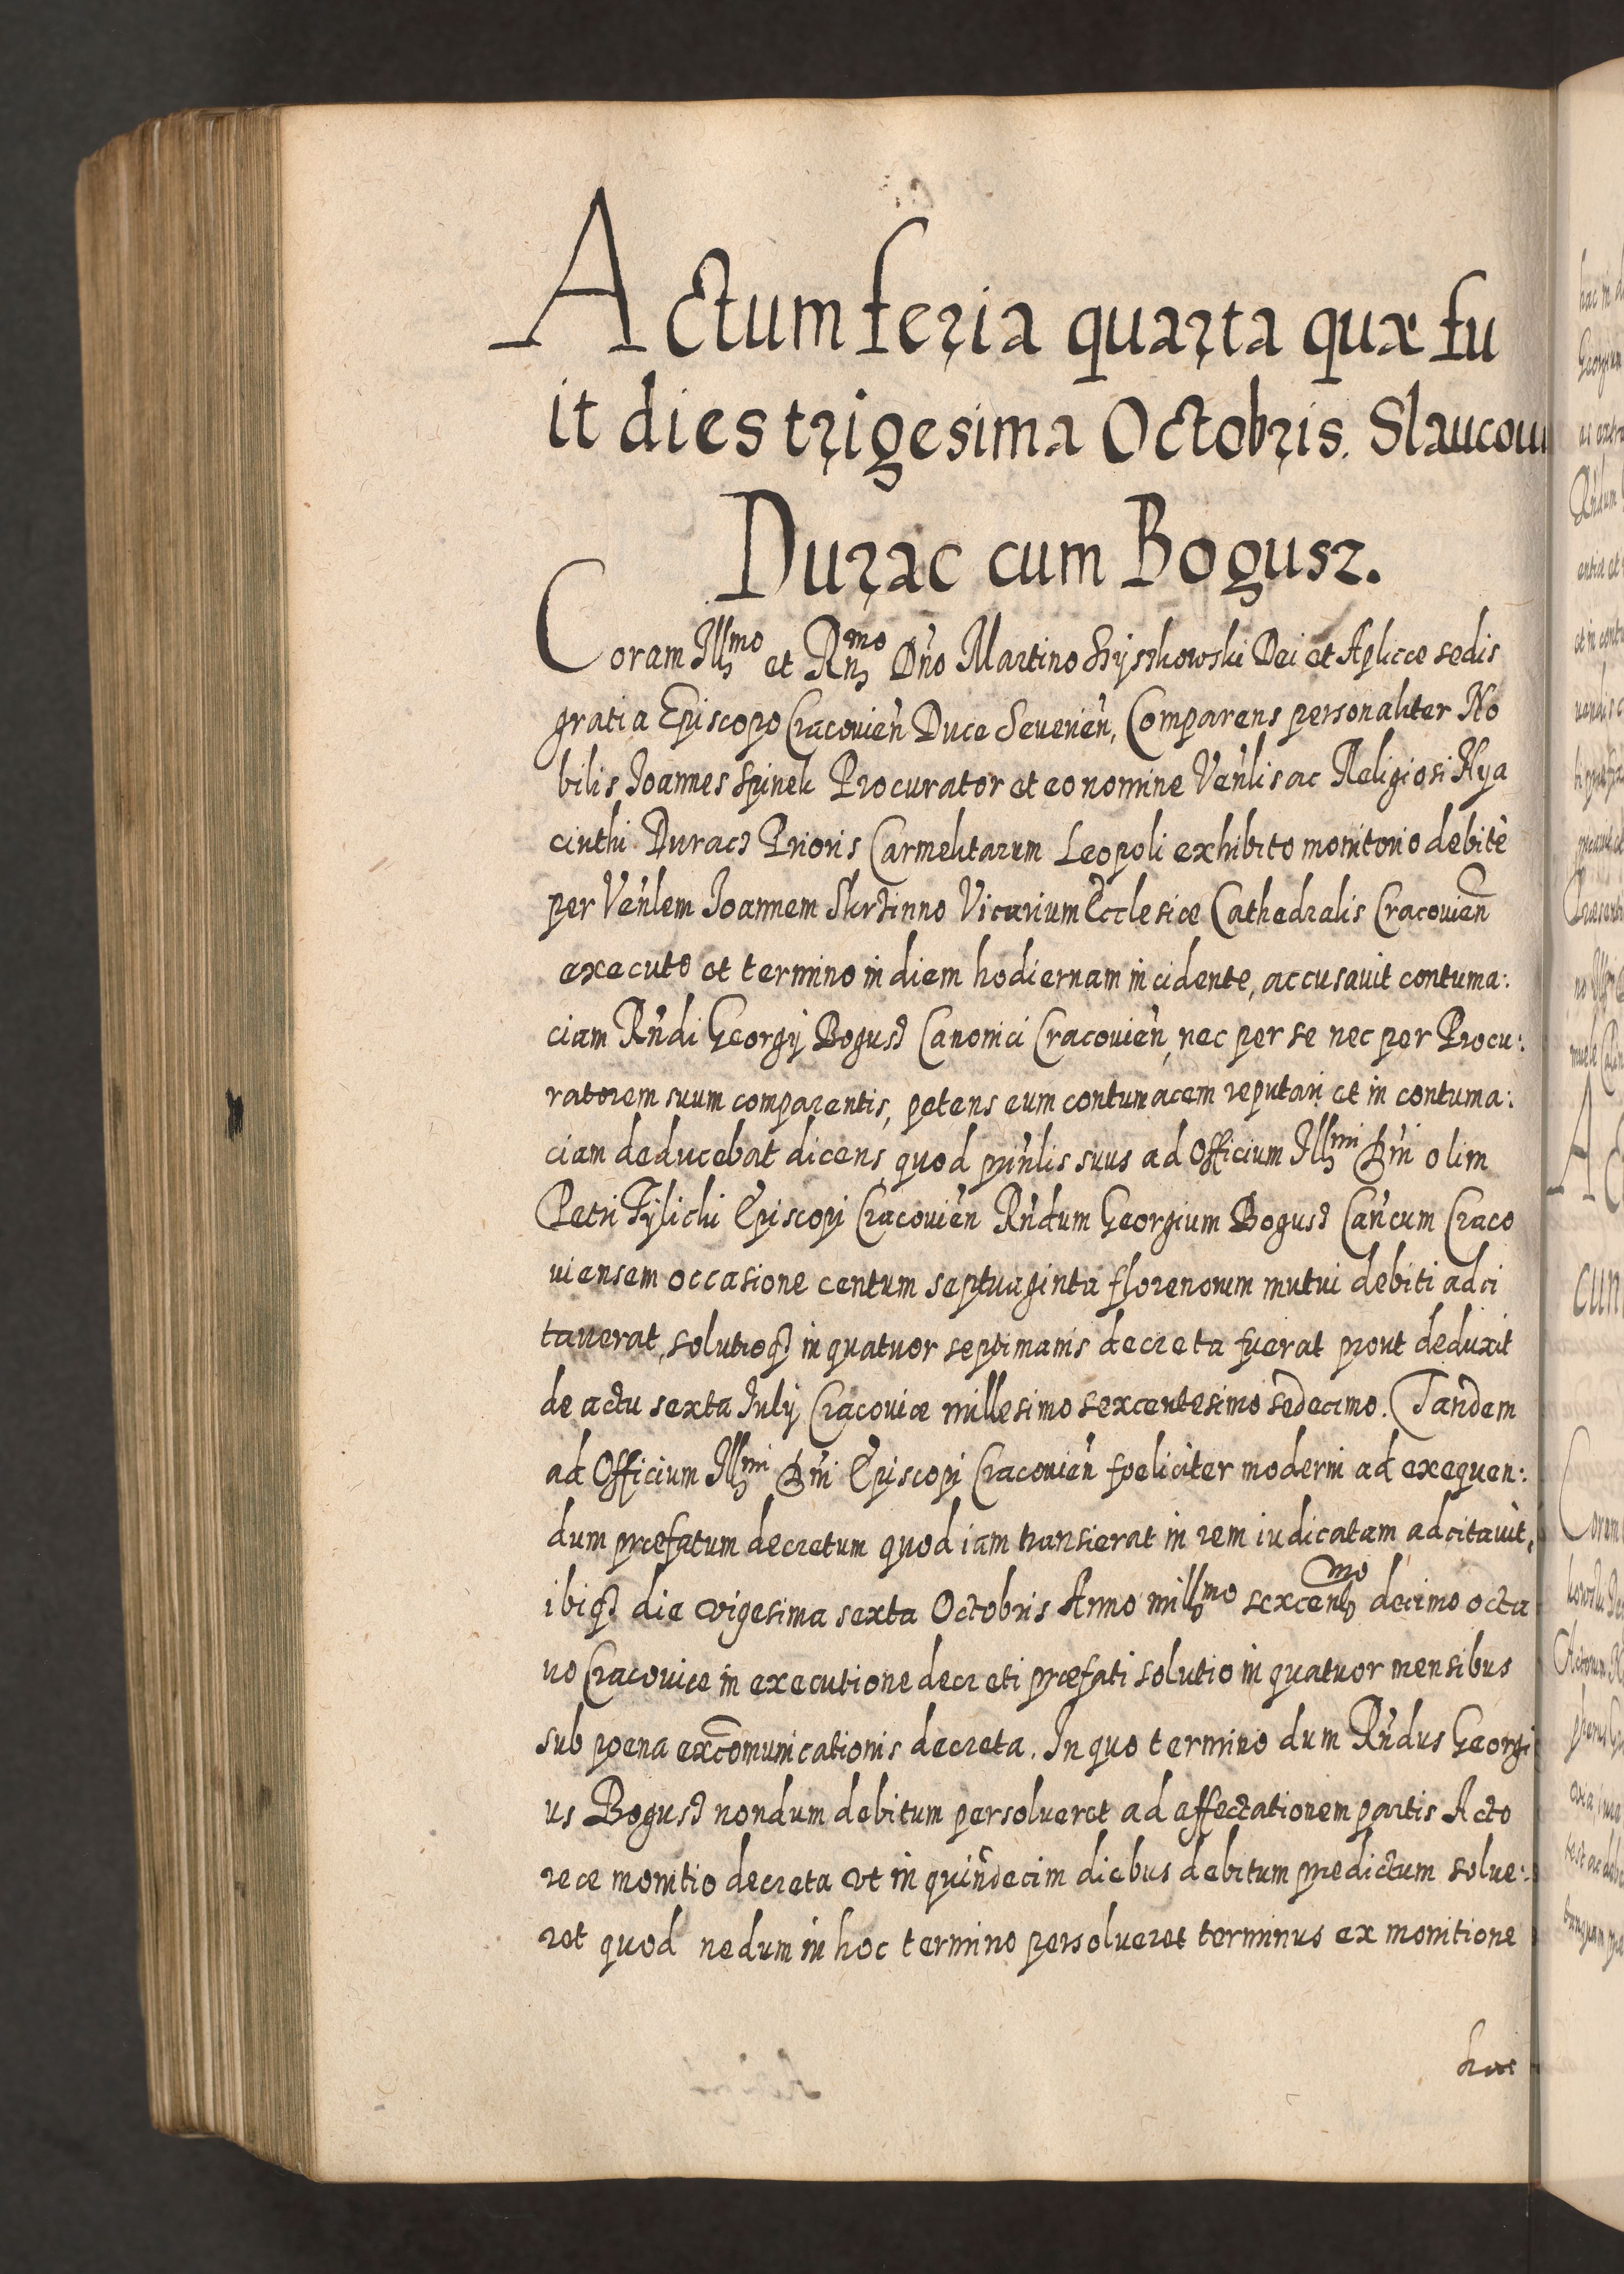 Actum feria quarta quæ fu
it dies trigesima Octobris. Slaucou
Durac cum Bogusz.
Coram Illmo et Rnmo Dño Martino Szyszkowski Dei et Aplicæ sedis
gratia Episcopo Cracovieñ Duce Severieñ, Comparens personaliter No
bilis Joannes Spinek Procurator et eo nomine Veñlis ac Religiosi Hya
cinthi Duracz Prioris Carmelitarum Leopoli exhibito monitorio debitè
per Veñlem Joannem Skrzinno Vicarium Ecclesiæ Cathedralis Cracovieñ
executo et termino in diem hodiernam incidente, accusavit contuma:
ciam Rñdi Georgÿ Bogusz Canonici Cracovieñ, nec per se nec per Procu:
ratorem suum comparentis, petens eum contumacem reputari et in contuma:
ciam deducebat dicens quod prinlis suus ad Officium Illmi Dñi olim
Petri Tÿlicki Episcopi Cracovieñ Rñdum Georgium Bogusz Cañcum Craco
viensem occasione centum septuaginta florenorum mutui debiti adci
taverat, solutioqz in quatuor septimanis decreta fuerat prout deduxit
de actu sexta Julÿ Cracoviæ millesimo sexcentesimo sedecimo. Tandem
ad Officium Illmi Dñi Episcopi Cracovieñ fœliciter moderni ad exequen:
dum præfatum decretum quod iam transierat in rem iudicatam adcitavit,
ibiqz die vigesima sexta Octobris Anno millmo sexcenmo decimo octa
vo Cracoviæ in executione decreti præfati solutio in quatuor mensibus
sub poena excōmunicationis decreta. In quo termino dum Rñdus Georgi
us Bogusz nondum debitum persolveret ad affectationem partis Acto
reæ monitio decreta vt in quindecim diebus debitum prædictum solve:
ret quod nedum in hoc termino persolveret terminus ex monitione
hac